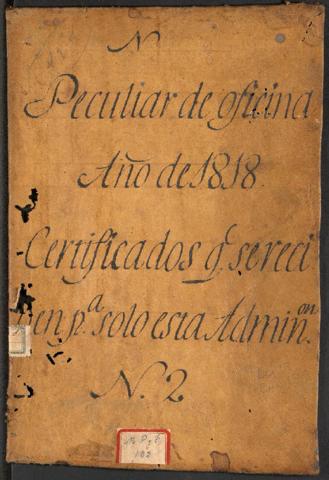 N
Peculiar de oficina
Año de 1818.
Certificados q.e se reci
en p.a solo esta Admin.on
N. 2.
102